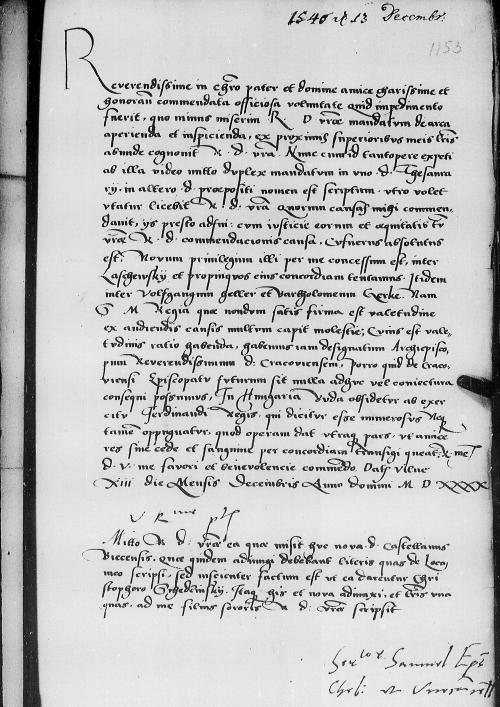 1540 13 Decembr.
1153
Reverendissime in Chro pater et domine amice charissime et
honoran commendata officiosa voluntate Quid impedimento
fuerit, quo minus miserim R. D vrae mandatum de arca
aperienda et inspicienda, ex proximis superioribus meis lris
abunde cognovit R. d. vra. Nunc cum id tantopere expeti
ab illa video mitto duplex mandatum in vno d. Thesaura
rij in altero d. praepositi nomen est scriptum. vtro volet
vtatur licebit R. d. vra Quorum causas mihi commen,
davit, ijs presto adfui: cum iusticie eorum et aequitatis tum
vrae R. d. commendacionis causa. Cusnerus absolutus
est: Novum privilegium illi per me concessum est, inter
Laschevsky et propinquos eius concordiam tentamus. Itidem
inter Volfgangum Zeller et Bartholomeum Gerke. Nam
S. M Regia quae nondum satis firma est valetudine
ex audiendis causis multum capit molestie; Cuius est vale,
tudinis ratio habenda, habemus iam designatum Archiepisco,
pum Reverendissimum d: Cracoviensem, Porro quid de Craco,
viensi Episcopatu futurum sit nulla adhuc vel coniectura
consequi possumus, In Hungaria Buda obsidetur ab exer
citu Ferdinandi Regis, qui dicitur esse numerosus Neque
tamen oppugnatur, quod operam dat vtraque pars, vt amice
res sine cede et sanguine per concordiam transigi queat, & me
d. v. me favori et benevolencie commendo. Dat Vilnae
XIII die Mensis Decembris Anno domini M D XXXX
V R
Mitto R d: vrae ea quae misit huc nova d. Castellanus
Biecensis, Que quidem adiungi debebant literis quas de
meo scripsi, sed inscienter factum est vt ea darentur Chri
stophoro Itaque his et nova adiunxi, et lris vna
quas, ad me filius sororis R d: vrae scripsit
Samuel Eps